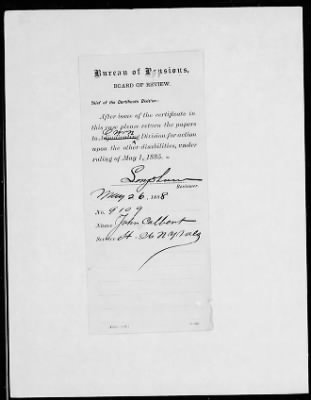 Bureau of Pensions,
BOARD OF REVIEW.
Chief of the Certificate Division:
After issue of the certificate in
this case please return the papers
to Division for action
upon the other disabilities, under
ruling of May 1, 1885.
Reviewer.
May 26, 1888
No. 9129
Name John Calhoun
Service H. 26 N.Y. Vols